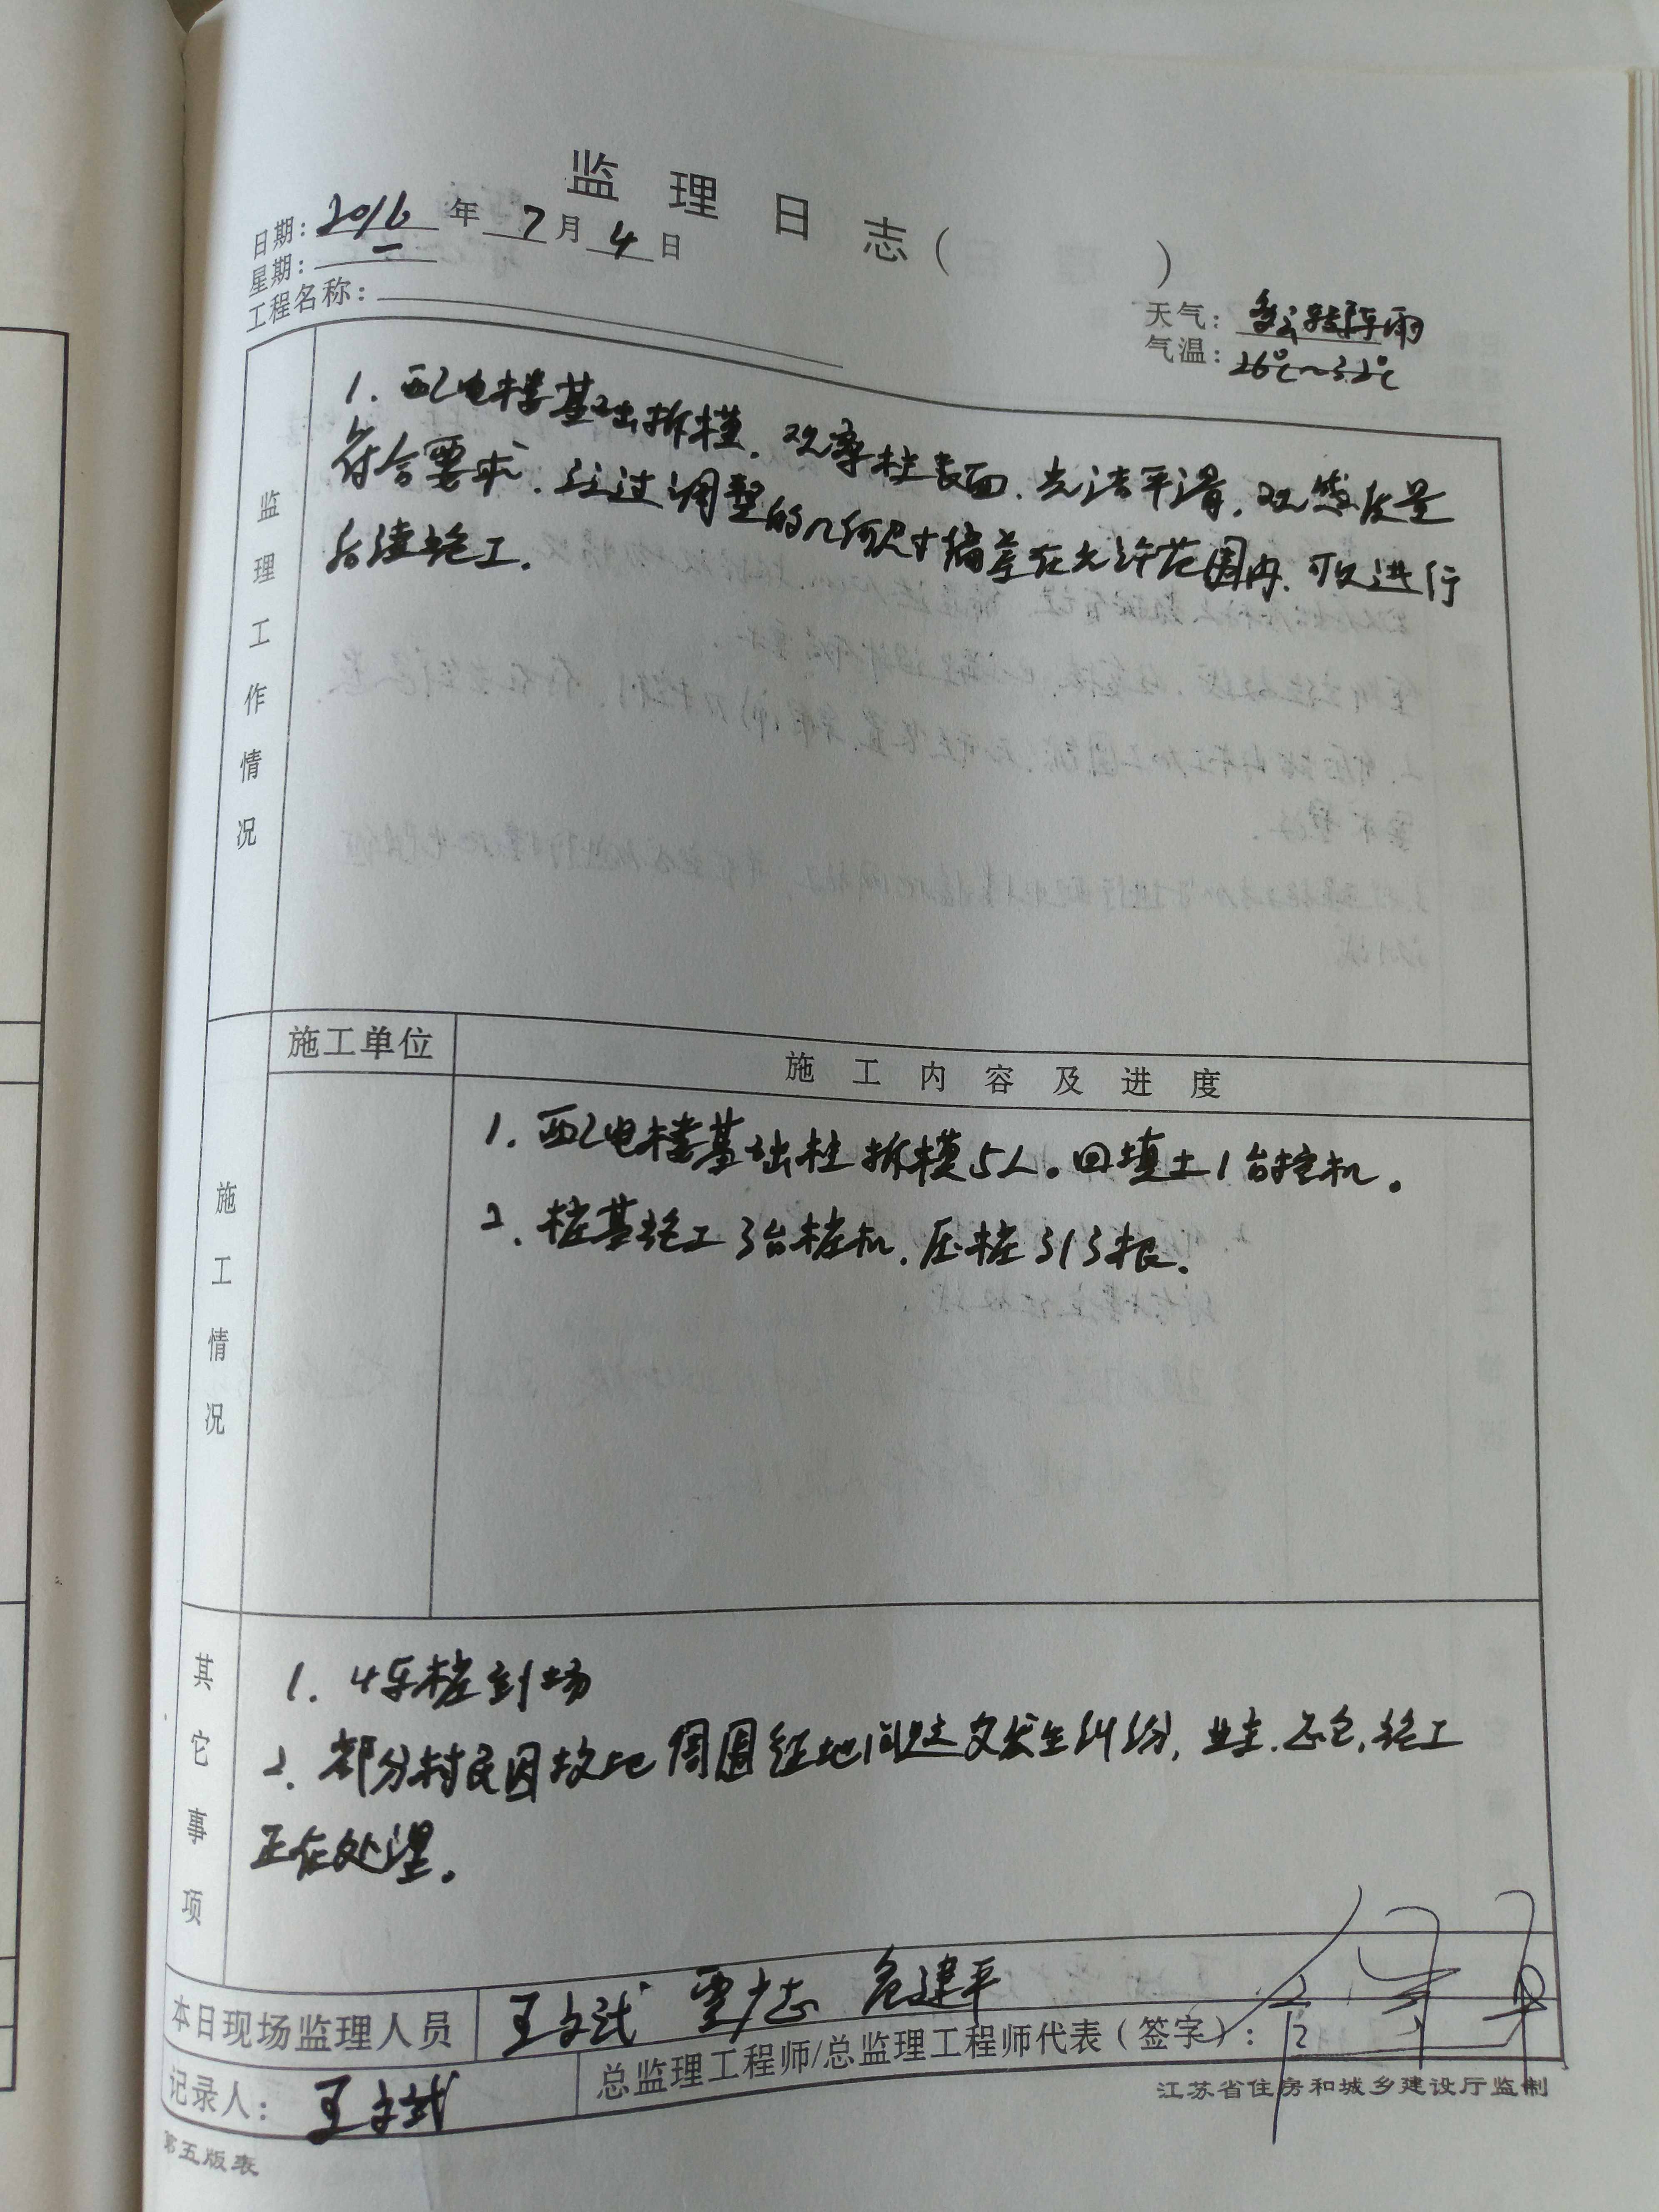 监理日志（ ）
日期：2016年7月4日
星期：一
工程名称：
天气：多云转阵雨
气温：26℃~32℃
监理工作情况
1. 配电楼基础拆模，观察柱表面，光洁平滑，观感质量
符合要求，经过调整的几何尺寸偏差在允许范围内，可以进行
后续施工.
施工情况
施工单位
施工内容及进度
1. 配电楼基础柱拆模5人。回填土1台挖机。
2. 桩基施工3台桩机，压桩313根.
其它事项
1. 4车桩到场
2. 部分村民因故地周围征地问题又发生纠纷，业主.总包，施工
正在处理。
本日现场监理人员 王文斌 贾 志 危建平
记录人：王文斌
总监理工程师/总监理工程师代表（签字）：
江苏省住房和城乡建设厅监制
第五版表